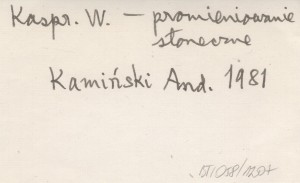 Kaspr. W. – promieniowanie
słoneczne
Kamiński And. 1981